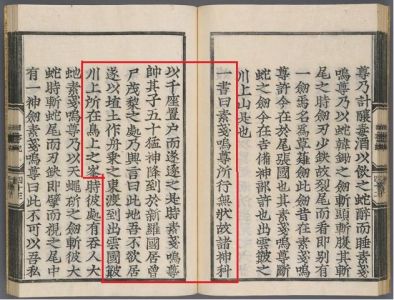 尊乃計釀毒酒以飮之蛇醉而睡素戔
嗚尊乃以蛇韓鋤之劒斬頭斬腹其斬
尾之時劒刃少缺故裂尾而看即別有
一劒焉名爲草薙劒此劒昔在素戔嗚
尊許今在於尾張國也其素戔嗚尊斷
蛇之劒今在吉備神部許也出雲簸之
川上山是也
一書曰素戔嗚尊所行無狀故諸神科
以千座置戸而遂逐之是時素戔嗚尊
帥其子五十猛神降到於新羅國居曾
尸茂梨之處乃興言曰此地吾不欲居
遂以埴土作舟乘之東渡到出雲國簸
川上所在鳥上之峯時彼處有呑人大
蛇素戔嗚尊乃以天蠅斫之劒斬彼大
蛇時斬蛇尾而刃缺即擘而視之尾中
有一神劒素戔嗚尊曰此不可以吾私